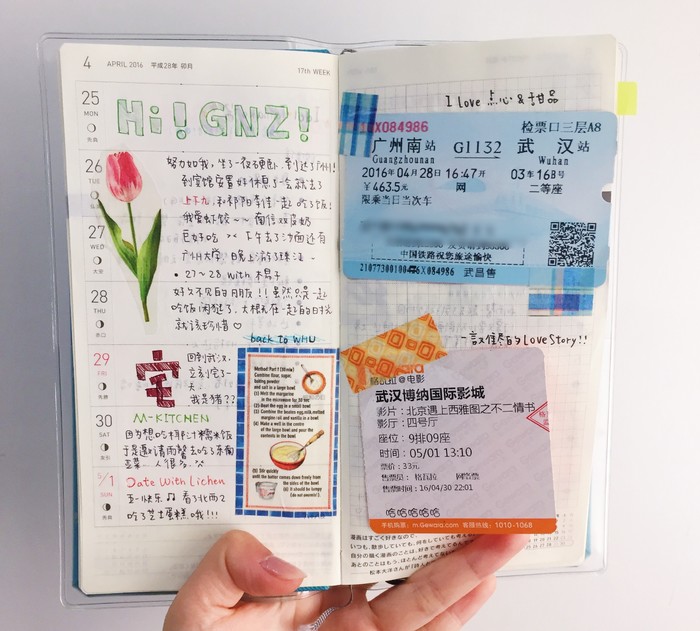 4 APRIL 2016 平成28年 卯月
17th WEEK
25
MON
先負
Hi! GNZ!
26
TUE
努力如我,坐了一夜硬卧,到达了广州!
到宾馆安置好休息了一会就去了
上下九,和祁阳李佳一起吃了饭!
我爱虾饺~~南信双皮奶
巨好吃 >< 下午去了沙面还有
27
WED
大安
广州大学,晚上游了珠江~
• 27~28 with 木易子
28
THU
赤口
好久不见的朋友!!虽然只是一起
吃饭闲逛了,大概在一起的日子
就该珍惜♡
back to WHU
29
FRI
先勝
宅
回到武汉,
立刻宅了一
天
我是猪??
M-KITCHEN
30
SAT
友引
因为想吃
于是邀请雨馨去吃了东南
亚菜 人很多
5/1
SUN
先負
Date With Lichen
至一快乐♫ 看了北西2
吃了芝士蛋糕 哦!!!
Method Part 1 (Hi now)
Combine flour, sugar,
baking powder
and salt in a large bowl
(1) Melt the margarine
in the microwave for 30 sec
(2) Beat the egg in a small bowl
(3) Combine the beaten egg, milk, melted
margarine and vanilla in a bowl
(4) Make a well in the centre
of the large bowl and pour the
contents in the bowl
(5) Stir quickly
until the batter comes down freely from
the sides of the bowl
(6) It should be lumpy
(do not overmix).
I love 点心 & 甜品
16X084986
检票口三层A8
广州南站 G1132 武汉站
Guangzhounan Wuhan
2016年04月28日16:47开 03车16B号
¥463.5元 网 二等座
限乘当日当次车
中国铁路祝您旅途愉快
武昌售
一言难尽的LoveStory!!
格瓦拉@电影
武汉博纳国际影城
影片:北京遇上西雅图之不二情书
影厅:四号厅
座位:9排09座
时间:05/01 13:10
票价:33元
售票员: 格瓦拉 网络票
售票时间:16/04/30 22:01
哈哈哈哈哈
手机购票:m.Gewara.com 客服热线:1010-1068
漫画はすごく好きで、
いつも、散歩していても、何をしていても考えて
自分の描く漫画のことは、好きで考えてる
あとのことはもう、
松本大洋さんが